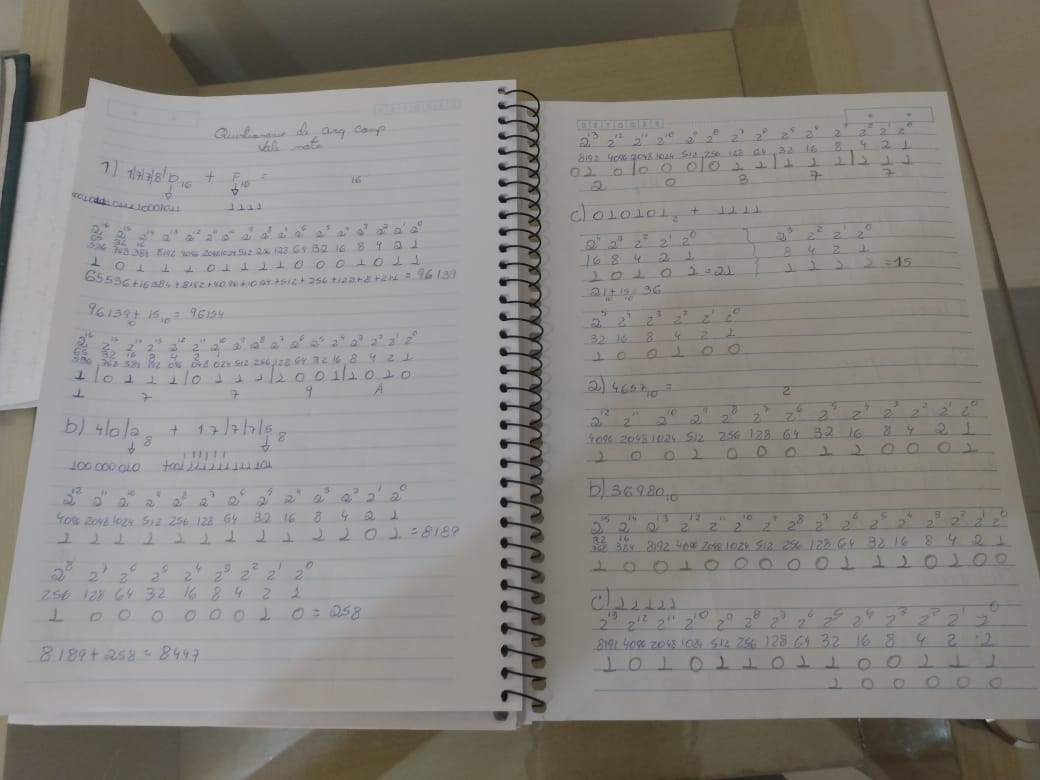 Questionario de arq comp
Vale nota
1) 1/7/7/8/b₁₆ + F₁₆ = 16
1111
2¹⁶ 2¹⁵ 2¹⁴ 2¹³ 2¹² 2¹¹ 2¹⁰ 2⁹ 2⁸ 2⁷ 2⁶ 2⁵ 2⁴ 2³ 2² 2¹ 2⁰
65 32 16
536 768 384 8192 4096 2048 1024 512 256 128 64 32 16 8 4 2 1
1 0 1 1 1 0 1 1 1 1 0 0 0 1 0 1 1
65536+16384+8192+4096+1024+512+256+128+8+2+1 = 96139
96139₁₀ + 15₁₀ = 96154
2¹⁶ 2¹⁵ 2¹⁴ 2¹³ 2¹² 2¹¹ 2¹⁰ 2⁹ 2⁸ 2⁷ 2⁶ 2⁵ 2⁴ 2³ 2² 2¹ 2⁰
65 32 16 8 4 2 1
536 768 384 192 096 048 024 512 256 128 64 32 16 8 4 2 1
1 | 0 1 1 1 | 0 1 1 1 | 1 0 0 1 | 1 0 1 0
1 7 7 9 A
b) 4/0/2₈ + 17/7/7/5₈
100 000 010
2¹² 2¹¹ 2¹⁰ 2⁹ 2⁸ 2⁷ 2⁶ 2⁵ 2⁴ 2³ 2² 2¹ 2⁰
4096 2048 1024 512 256 128 64 32 16 8 4 2 1
1 1 1 1 1 1 1 1 1 1 1 0 1 = 8189
2⁸ 2⁷ 2⁶ 2⁵ 2⁴ 2³ 2² 2¹ 2⁰
256 128 64 32 16 8 4 2 1
1 0 0 0 0 0 0 1 0 = 258
8189 + 258 = 8447
2¹³ 2¹² 2¹¹ 2¹⁰ 2⁹ 2⁸ 2⁷ 2⁶ 2⁵ 2⁴ 2³ 2² 2¹ 2⁰
8192 4096 2048 1024 512 256 128 64 32 16 8 4 2 1
0 1 0 | 0 0 0 | 0 1 1 | 1 1 1 | 1 1 1
2 0 3 7 7
c) 010101₂ + 1111
2⁴ 2³ 2² 2¹ 2⁰ 2³ 2² 2¹ 2⁰
16 8 4 2 1 8 4 2 1
1 0 1 0 1 = 21 1 1 1 1 = 15
21₁₀ + 15₁₀ = 36
2⁵ 2⁴ 2³ 2² 2¹ 2⁰
32 16 8 4 2 1
1 0 0 1 0 0
2) 4657₁₀ = 2
2¹² 2¹¹ 2¹⁰ 2⁹ 2⁸ 2⁷ 2⁶ 2⁵ 2⁴ 2³ 2² 2¹ 2⁰
4096 2048 1024 512 256 128 64 32 16 8 4 2 1
1 0 0 1 0 0 0 1 1 0 0 0 1
b) 36980₁₀
2¹⁵ 2¹⁴ 2¹³ 2¹² 2¹¹ 2¹⁰ 2⁹ 2⁸ 2⁷ 2⁶ 2⁵ 2⁴ 2³ 2² 2¹ 2⁰
32 16
768 384 8192 4096 2048 1024 512 256 128 64 32 16 8 4 2 1
1 0 0 1 0 0 0 0 0 1 1 1 0 1 0 0
c) 11111
2¹³ 2¹² 2¹¹ 2¹⁰ 2⁹ 2⁸ 2⁷ 2⁶ 2⁵ 2⁴ 2³ 2² 2¹ 2⁰
8192 4096 2048 1024 512 256 128 64 32 16 8 4 2 1
1 0 1 0 1 1 0 1 1 0 0 1 1 1
1 0 0 0 0 0